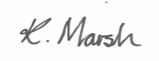 K. Marsh